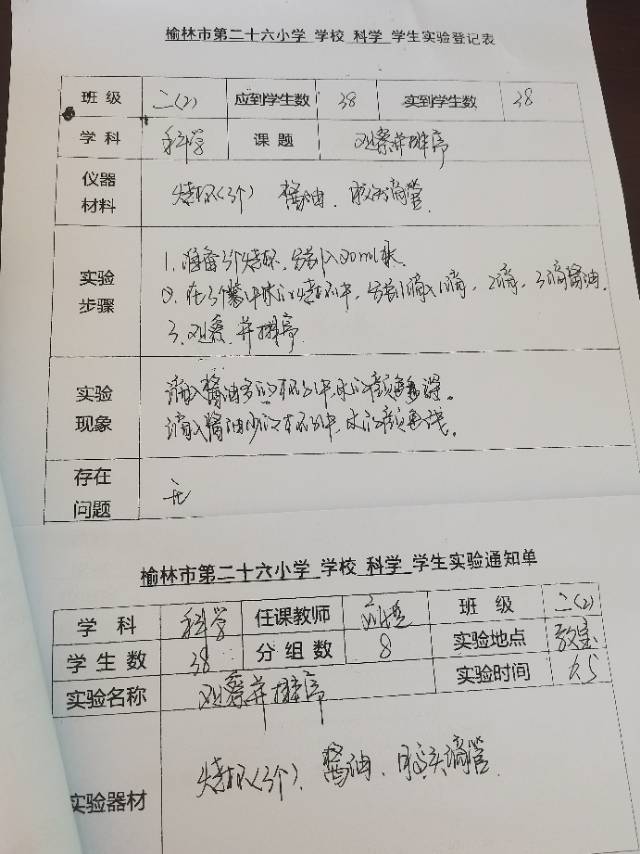 榆林市第二十六小学 学校 科学 学生实验登记表
班级 二(2) 应到学生数 38 实到学生数 38
学科 科学 课题 观察并排序
仪器材料 烧杯(3个) 酱油、胶头滴管
实验步骤
1.准备3个烧杯,分别入20ml水
2.在3个 烧杯中,分别滴入1滴、2滴、3滴酱油.
3.观察、并排序
实验现象
滴入酱油多的 中,水的颜色深。
滴入酱油少的 中,水的颜色浅。
存在问题 无
榆林市第二十六小学 学校 科学 学生实验通知单
学科 科学 任课教师 班级 二(2)
学生数 38 分组数 8 实验地点 教室
实验名称 观察并排序 实验时间
实验器材 烧杯(3个)、酱油、胶头滴管